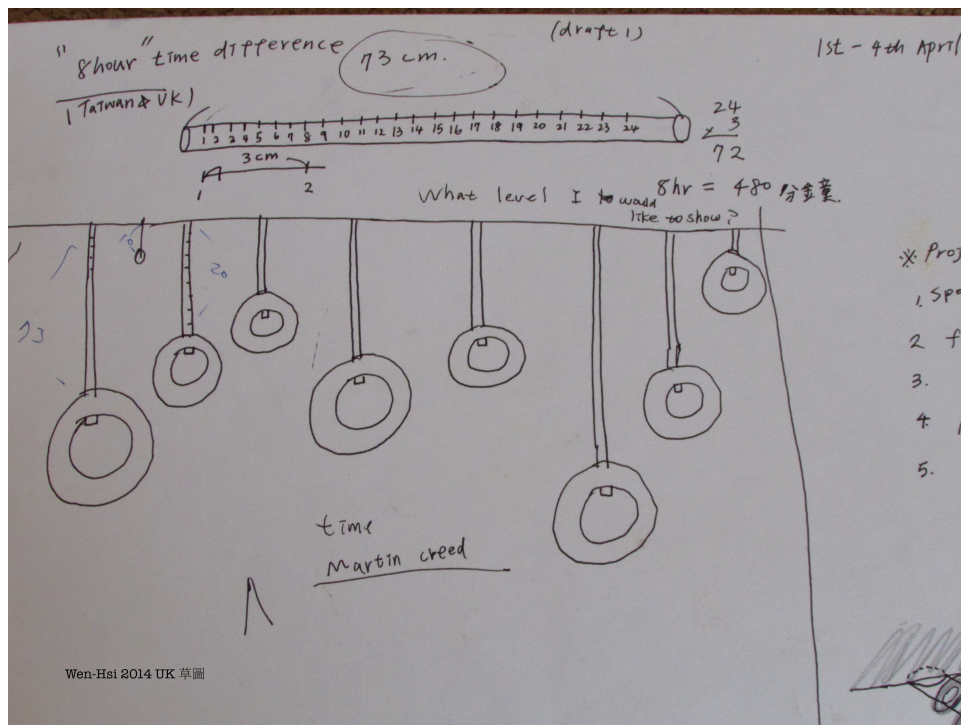 "8hour" time difference
73 cm.
(draft 1)
1st - 4th April
(Taiwan & UK)
1 2 3 4 5 6 7 8 9 10 11 12 13 14 15 16 17 18 19 20 21 22 23 24
24
x 3
72
3 cm
1 2
What level I would
like to show?
8hr = 480 分鐘
20
73
※ Proj
1. Spa
2 f
3.
4.
5.
time
Martin creed
Wen-Hsi 2014 UK 草圖